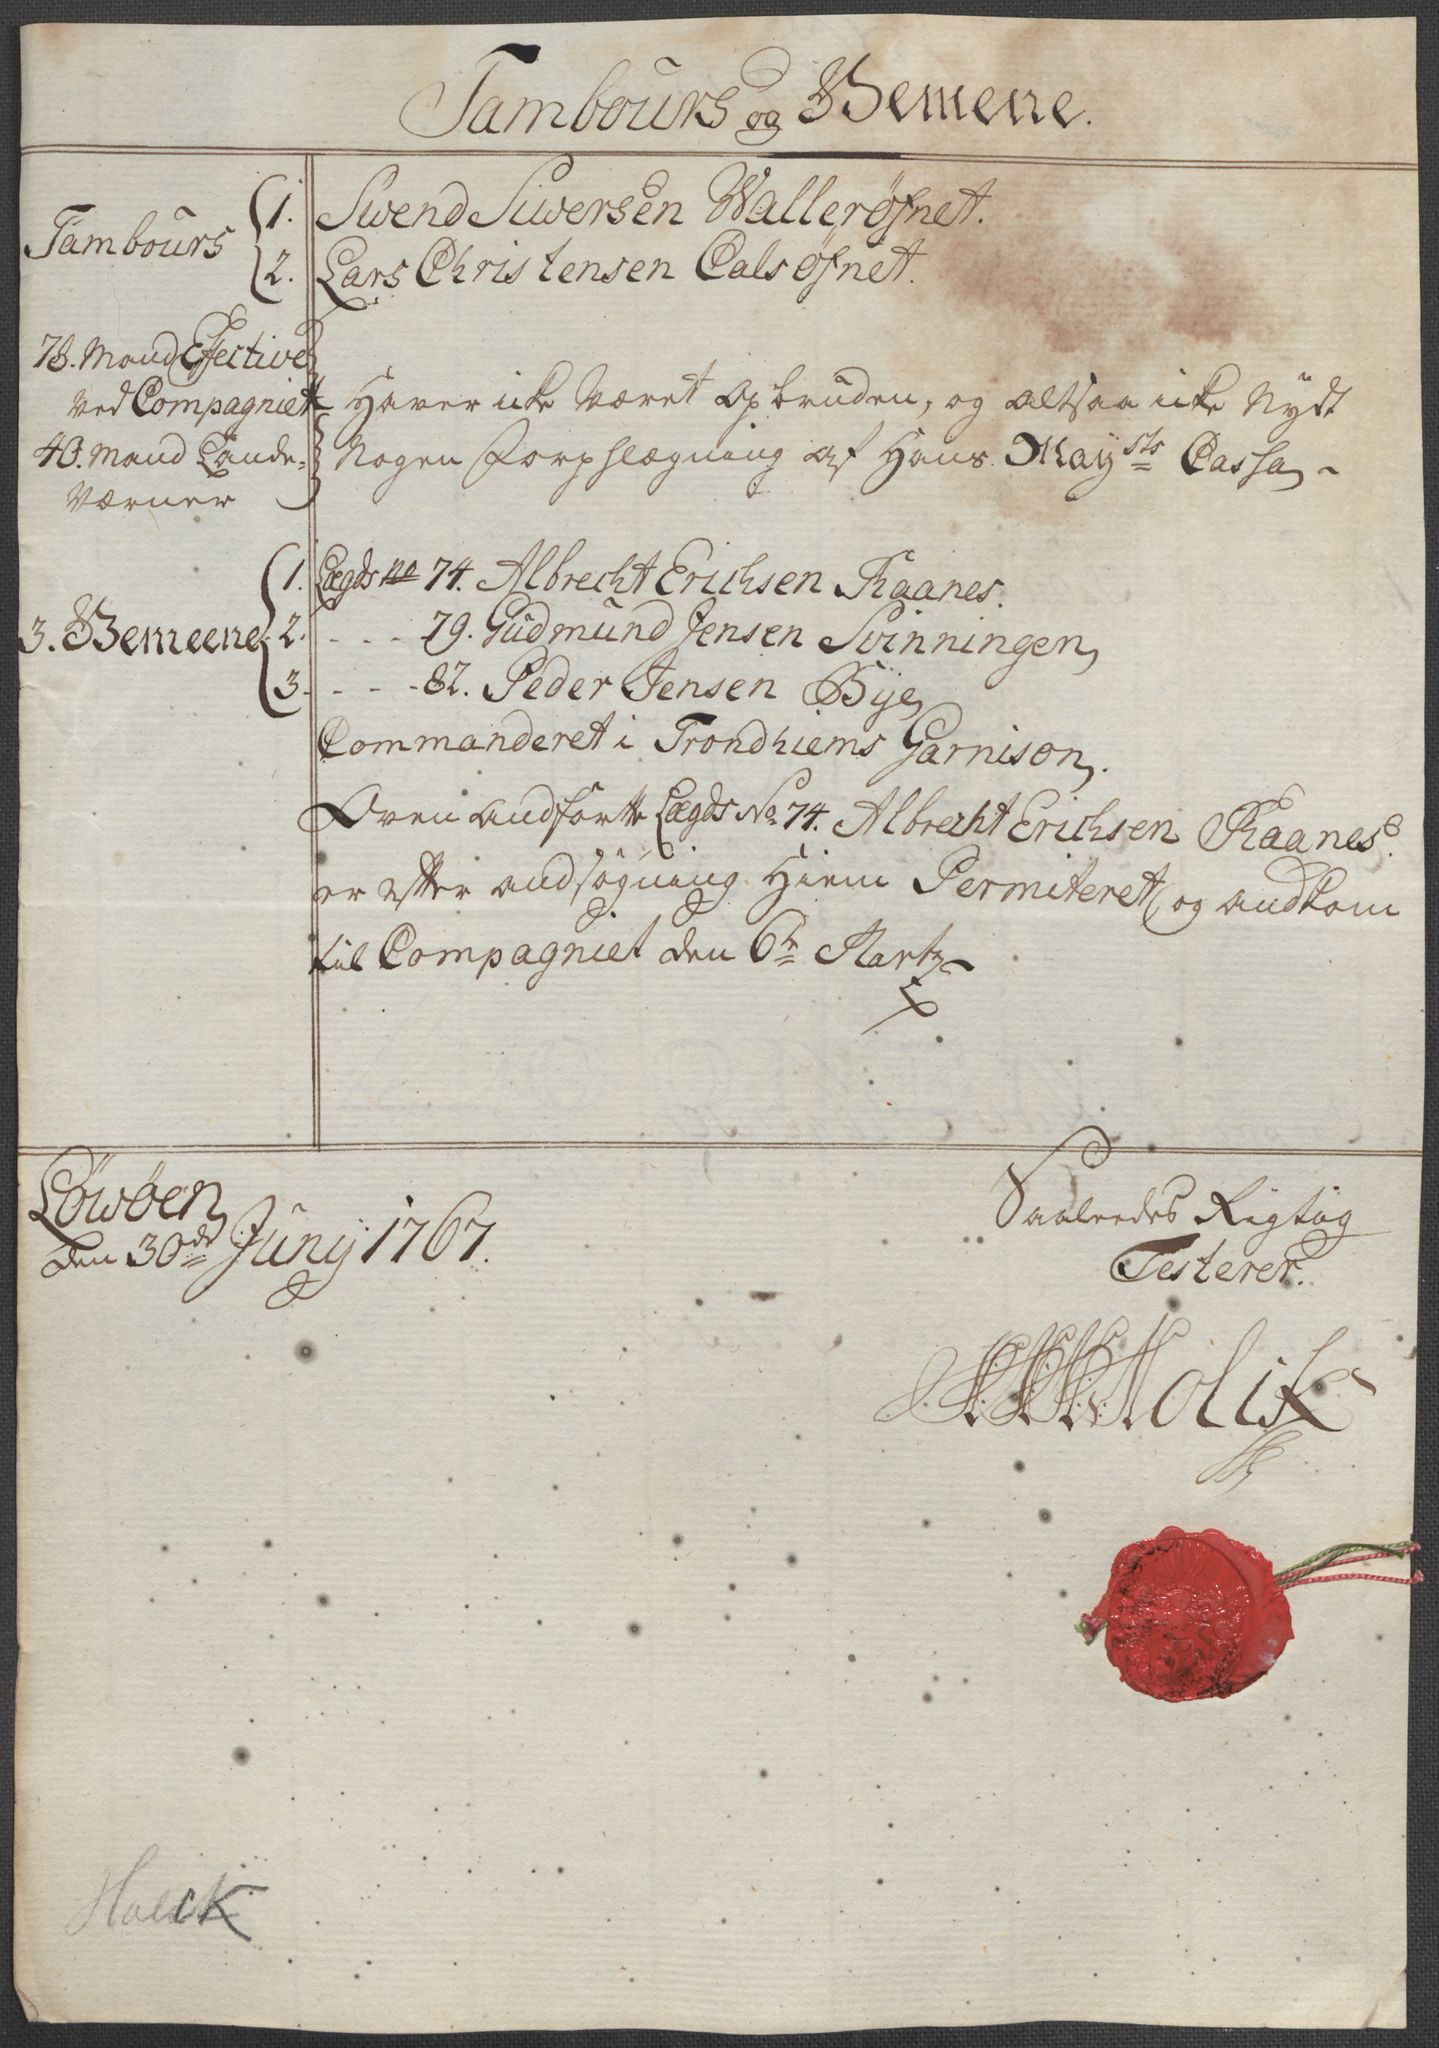 Tambours og Gemene.
Tambours
1. Swend Siwersen Wallerøfnet.
2. Lars Christensen Calsøfnet.
78. Mand Efective
ved Compagniet
40. Mand Lande-
Værner
Haver icke været Opbruden, og altsaa icke Nydt
Nogen Forpflægning af Hans Maysts Cassa
3. Gemeene
1. Lægds No 74. Albrecht Erichsen Raanes.
2. - - - 79. Gudmund Jensen Svinningen,
3. - - - 82. Peder Jensen Bye,
Commanderet i Trondhiems Garnison,.
Oven andførte Lægds No. 74. Albrecht Erichsen Raanes.
er efter andsøgning Hiem Permiteret, og andkom
til Compagniet den 6te Martz
Løwøen,
den 30de Juny 1767.
Saaleedes Rigtig
Testerer.
Holck